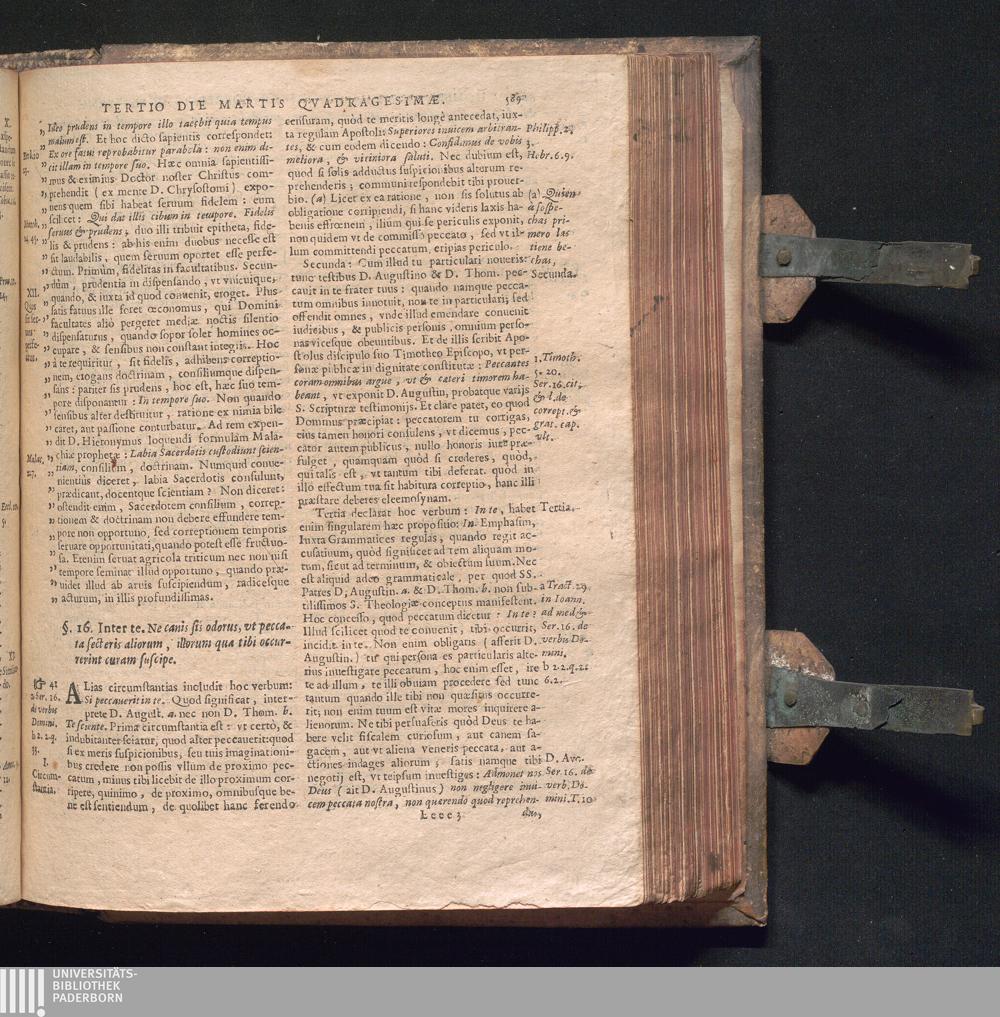 TERTIO DIE MARTIS QVADRAGESIMÆ. 589
„ Ideo prudens in tempore illo tacebit quia tempus
„ malum est. Et hoc dicto sapientis correspondet:
„ Ex ore fatui reprobabitur parabola: non enim di-
„ cit illam in tempore suo. Hæc omnia sapientissi-
„ mus & eximius Doctor noster Christus com-
„ prehendit (ex mente D. Chrysostomi) expo-
„ nens quem sibi habeat seruum fidelem: eum
scilicet: Qui dat illis cibum in tempore. Fidelis
„ seruus & prudens, duo illi tribuit epitheta, fide-
„ lis & prudens: ab his enim duobus necesse est
„ sit laudabilis, quem seruum oportet esse perfe-
„ ctum. Primùm, fidelitas in facultatibus. Secun-
„ dùm, prudentia in dispensando, vt vnicuique,
„ quando, & iuxta id quod conuenit, eroget. Plus
„ satis fatuus ille foret œconomus, qui Domini
„ facultates aliò pergeret mediæ noctis silentio
„ dispensaturus, quando sopor solet homines oc-
„ cupare, & sensibus non constant integris. Hoc
„ à te requiritur, sit fidelis, adhibens correptio-
„ nem, erogans doctrinam, consiliumque dispen-
„ sans: pariter sis prudens, hoc est, hæc suo tem-
„ pore disponantur: In tempore suo. Non quando
„ sensibus alter destituitur, ratione ex nimia bile
„ caret, aut passione conturbatur. Ad rem expen-
„ dit D. Hieronymus loquendi formulam Mala-
„ chiæ prophetæ: Labia Sacerdotis custodiunt scien-
„ tiam, consilium, doctrinam. Numquid conue-
„ nientius diceret, labia Sacerdotis consulunt,
„ prædicant, docentque scientiam? Non diceret:
„ ostendit enim, Sacerdotem consilium, correp-
„ tionem & doctrinam non debere effundere tem-
„ pore non opportuno, sed correptionem temporis
„ seruare opportunitati, quando potest esse fructuo-
„ sa. Etenim seruat agricola triticum nec non nisi
„ tempore seminat illud opportuno, quando præ-
„ uidet illud ab aruis suscipiendum, radicesque
„ acturum, in illis profundissimas.
§. 16. Inter te. Ne canis sis odorus, vt pecca-
ta secteris aliorum, illorum qua tibi occur-
rerint curam suscipe.
ALias circumstantias includit hoc verbum:
Si peccauerit in te. Quod significat, inter-
prete D. August. a. nec non D. Thom. b.
Te sciente. Prima circumstantia est: vt certò, &
indubitanter sciatur, quod alter peccauerit: quod
si ex meris suspicionibus, seu tuis imaginationi-
bus credere non possis vllum de proximo pec-
catum, minus tibi licebit de illo proximum cor-
ripere, quinimo, de proximo, omnibusque be-
ne est sentiendum, de quolibet hanc ferendo
Eccl. 20
XII.
Malac.
2.7.
41
a Ser. 16.
de verbis
Domini,
b 2. 2. q.
33.
I.
Circum-
stantia.
censuram, quòd te meritis longè antecedat, iux-
ta regulam Apostoli: Superiores inuicem arbitran-
tes, & cum eodem dicendo: Confidimus de vobis
meliora, & viciniora saluti. Nec dubium est,
quod si solis adductus suspicionibus alterum re-
prehenderis; communi respondebit tibi prouer-
bio. (a) Licet ex ea ratione, non sis solutus ab
obligatione corripiendi, si hanc videris laxis ha-
benis effrœnem, illum qui se periculis exponit,
non quidem vt de commisso peccato, sed vt il-
lum committendi peccatum, eripias periculo.
Secunda: Cum illud tu particulari noueris:
tunc testibus D. Augustino & D. Thom. pec-
cauit in te frater tuus: quando namque pecca-
tum omnibus innotuit, non te in particulari; sed
offendit omnes, vnde illud emendare conuenit
iudicibus, & publicis personis, omnium perso-
nas vicesque obeuntibus. Et de illis scribit Apo-
stolus discipulo suo Timotheo Episcopo, vt per-
sonæ publicæ in dignitate constitutæ: Peccantes
coram omnibus argue, vt & cæteri timorem ha-
beant, vt exponit D. Augustin, probatque varijs
S. Scripturæ testimonijs. Et clare patet, eo quod
Dominus præcipiat: peccatorem tu corrigas,
eius tamen honori consulens, vt dicemus, pec-
cator autem publicus, nullo honoris iure præ-
fulget, quamquam quòd si crederes, quòd,
qui talis est, vt tantum tibi deferat. quod in
illo effectum tua sit habitura correptio, hanc illi
præstare deberes eleemosynam.
Tertia declarat hoc verbum: In te, habet
enim singularem hæc propositio: In. Emphasim,
Iuxta Grammatices regulas, quando regit ac-
cusatiuum, quòd significet ad rem aliquam mo-
tum, sicut ad terminum, & obiectum suum. Nec
est aliquid adeo grammaticale, per quod SS.
Patres D. Augustin. a. & D. Thom. b. non sub-
tilissimos S. Theologiæ conceptus manifestent.
Hoc concesso, quod peccatum dicetur: In te?
Illud scilicet quod te conuenit, tibi occurrit,
incidit in te. Non enim obligaris (asserit D.
Augustin.) tu qui persona es particularis alte-
rius inuestigare peccatum, hoc enim esset, ire
te ad illum, te illi obuiam procedere sed tunc
tantum quando ille tibi non quæsitus occurre-
rit; non enim tuum est vitæ mores inquirere a-
lienorum. Ne tibi persuaseris quòd Deus te ha-
bere velit fiscalem curiosum, aut canem sa-
gacem, aut vt aliena veneris peccata, aut a-
ctiones indages aliorum; satis namque tibi
negotij est, vt teipsum inuestiges: Admonet nos
Deus (ait D. Augustinus) non negligere inui-
cem peccata nostra, non querendo quod reprehen-
Philipp. 2.
3.
Hebr. 6. 9.
(a) Quien
à sospe-
chas pri-
mero las
tiene he-
chas,
Secunda.
1. Timoth.
5. 20.
Ser. 16. cit,
& l. de
corrept. &
grat. cap.
vlt.
Tertia.
a Tract. 29.
in Ioann.
ad med &
Ser. 16. de
verbis Do-
mini.
b 2. 2. q. 2
6. 2.
D. Aug.
Ser. 16. de
verb. Do-
mini. T. 10
Eeee 3 das,
UNIVERSITÄTS-
BIBLIOTHEK
PADERBORN